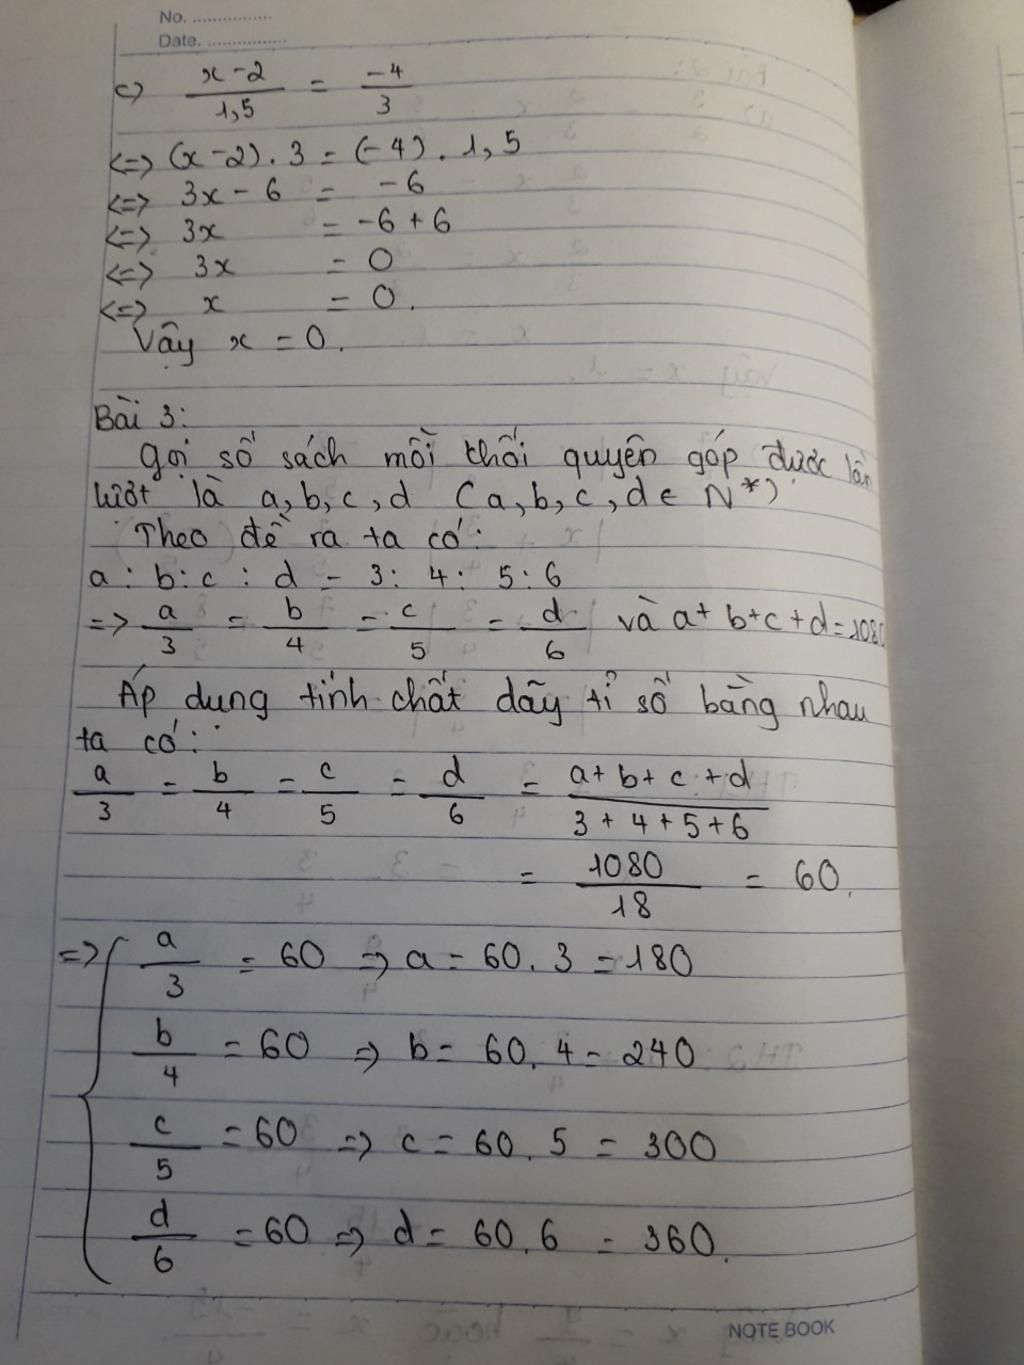 No. ................
Date. ................
<=> x-2/1,5 = -4/3
<=> (x-2).3 = (-4).1,5
<=> 3x - 6 = -6
<=> 3x = -6 + 6
<=> 3x = 0
<=> x = 0.
Vậy x = 0.
Bài 3:
Gọi số sách mỗi khối quyên góp được lần
lượt là a, b, c, d (a, b, c, d ∈ N*)
Theo đề ra ta có:
a : b : c : d = 3 : 4 : 5 : 6
=> a/3 = b/4 = c/5 = d/6 và a + b + c + d = 1080
Áp dụng tính chất dãy tỉ số bằng nhau
ta có:
a/3 = b/4 = c/5 = d/6 = a + b + c + d/3 + 4 + 5 + 6
= 1080/18 = 60.
=> { a/3 = 60 => a = 60.3 = 180
b/4 = 60 => b = 60.4 = 240
c/5 = 60 => c = 60.5 = 300
d/6 = 60 => d = 60.6 = 360.
NOTE BOOK